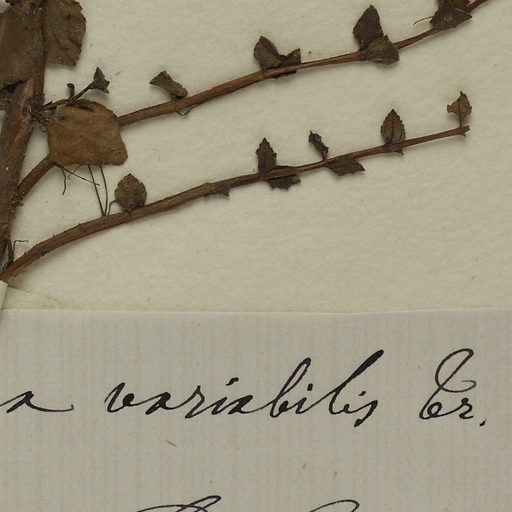 a variabilis Tr.